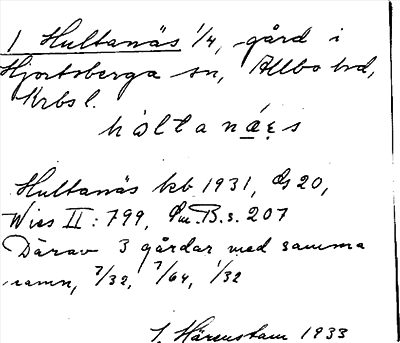 1 Hultanäs 1/4, gård i
Hjortsberga sn, Allbo hd,
Krbs l.
hòltanǽ̱s
Hultanäs kb 1931, Gs 20,
Wies II: 799, Sm.B.s. 207
Därav 3 gårdar med samma
namn, 7/32, 7/64, 1/32
J. Härenstam 1933